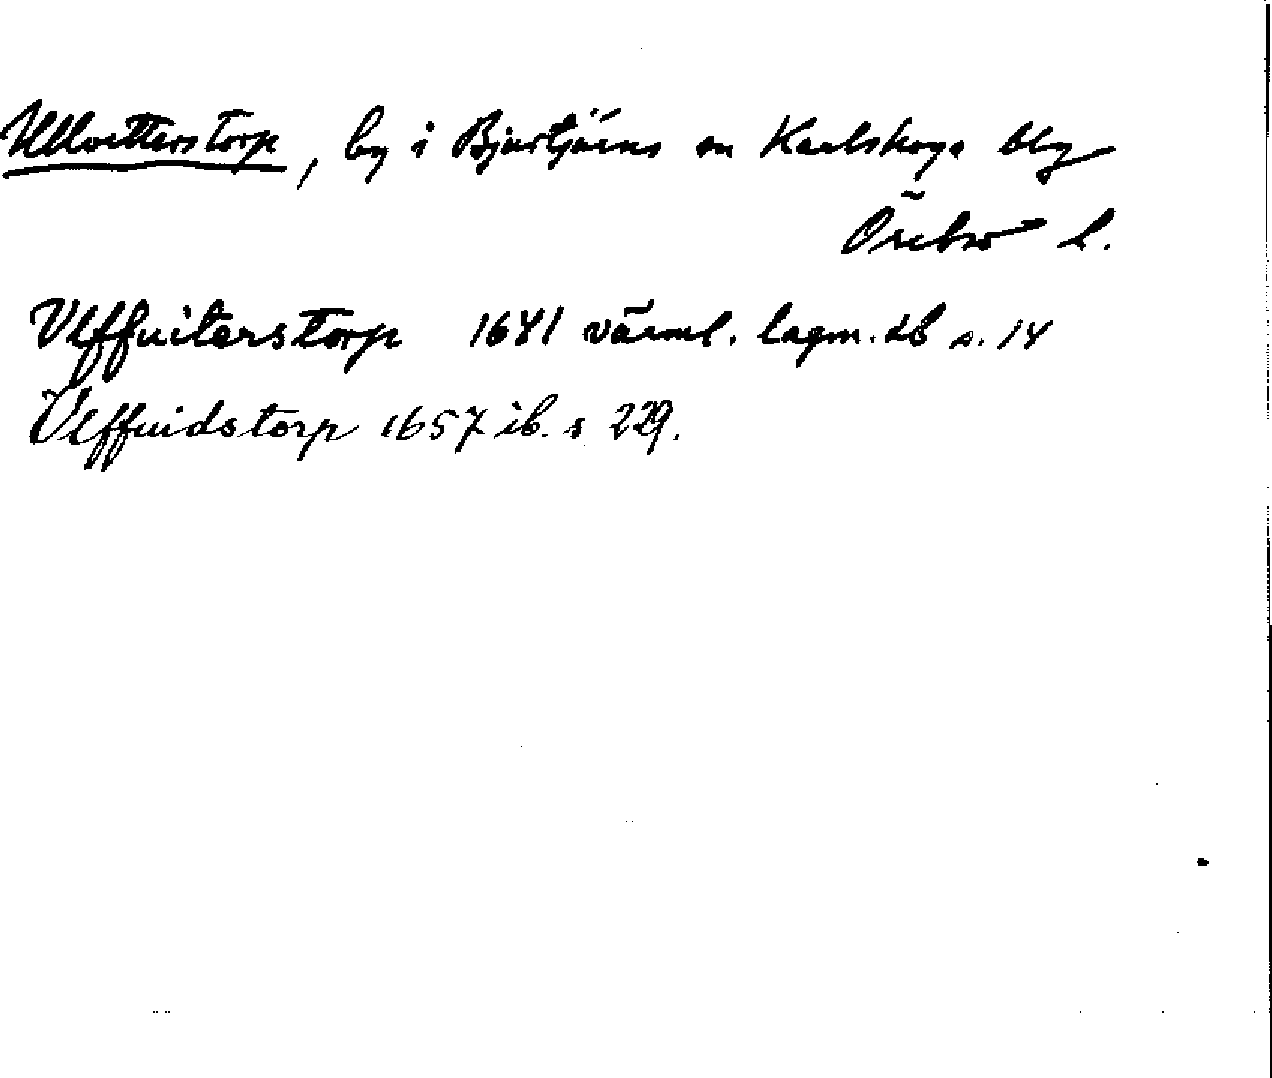 Ullvetterstorp, by i Bjurtjärns sn Karlskoga blg
Örebro l.
Ulffuiterstorp 1641 värml. lagm. db s. 14
Ulffuidstorp 1657 ib. s 229.